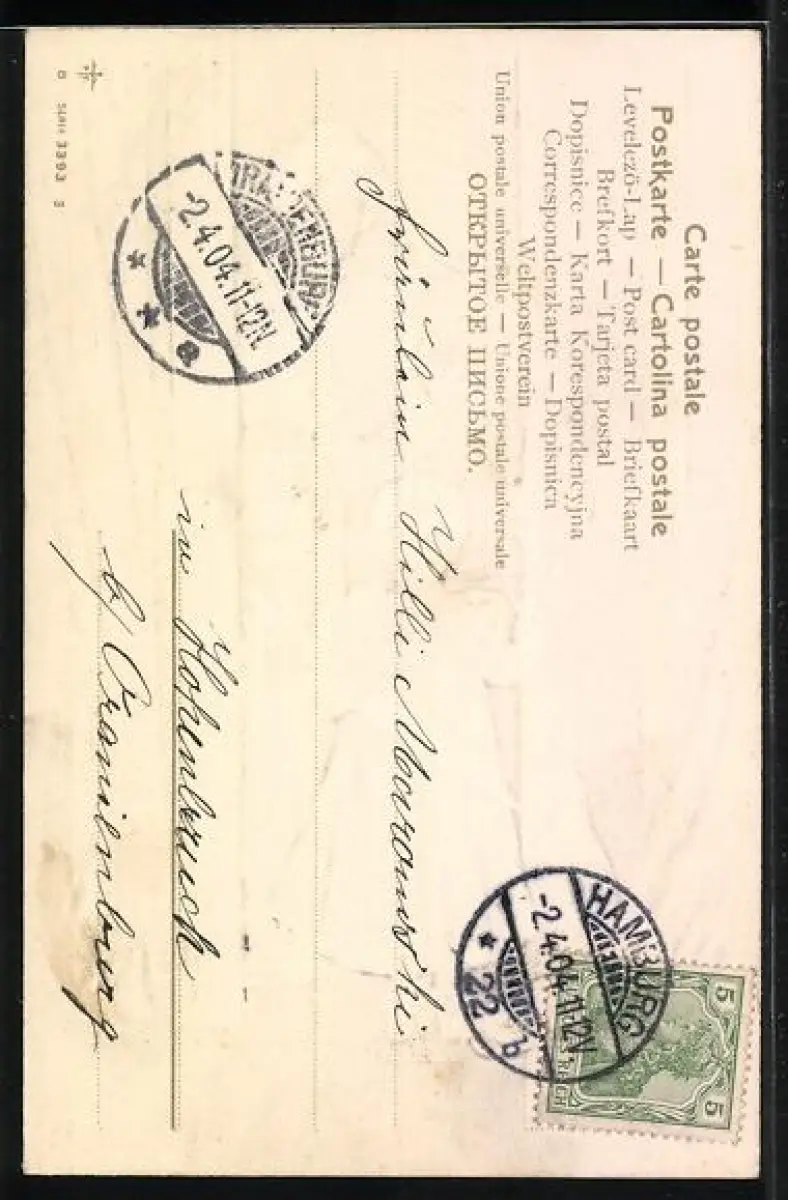 Carte postale
Postkarte — Cartolina postale
Levelező-Lap — Post card — Briefkaart
Brefkort — Tarjeta postal
Dopisnice — Karta Korespondencyjna
Correspondenzkarte — Dopisnica
Weltpostverein
Union postale universelle — Unione postale universale
ОТКРЫТОЕ ПИСЬМО.
HAMBURG
-2.4.04.11-12V.
* 22 b
5 5
REICH
Fräulein Hilli
in Hohenbruch
b/ Oranienburg
-2.4.04.11-12N
* * a
3393